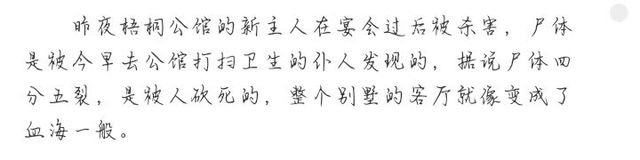 昨夜梧桐公馆的新主人在宴会过后被杀害，尸体
是被今早去公馆打扫卫生的仆人发现的，据说尸体四
分五裂，是被人砍死的，整个别墅的客厅就像变成了
血海一般。